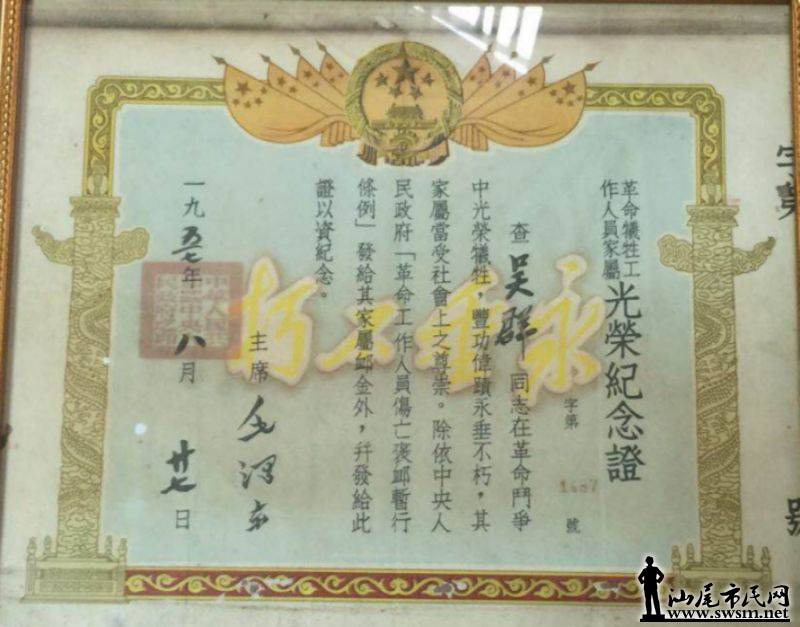 革命犧牲工
作人員家屬
光榮紀念證
字第 1407 號
查吳群同志在革命鬥爭
中光榮犧牲，豐功偉蹟永垂不朽，其
家屬當受社會上之尊崇。除依中央人
民政府「革命工作人員傷亡褒卹暫行
條例」發給其家屬卹金外，幷發給此
證以資紀念。
主席 毛澤東
一九五七年八月廿七日
永垂不朽
號
汕尾市民网
www.swsm.net